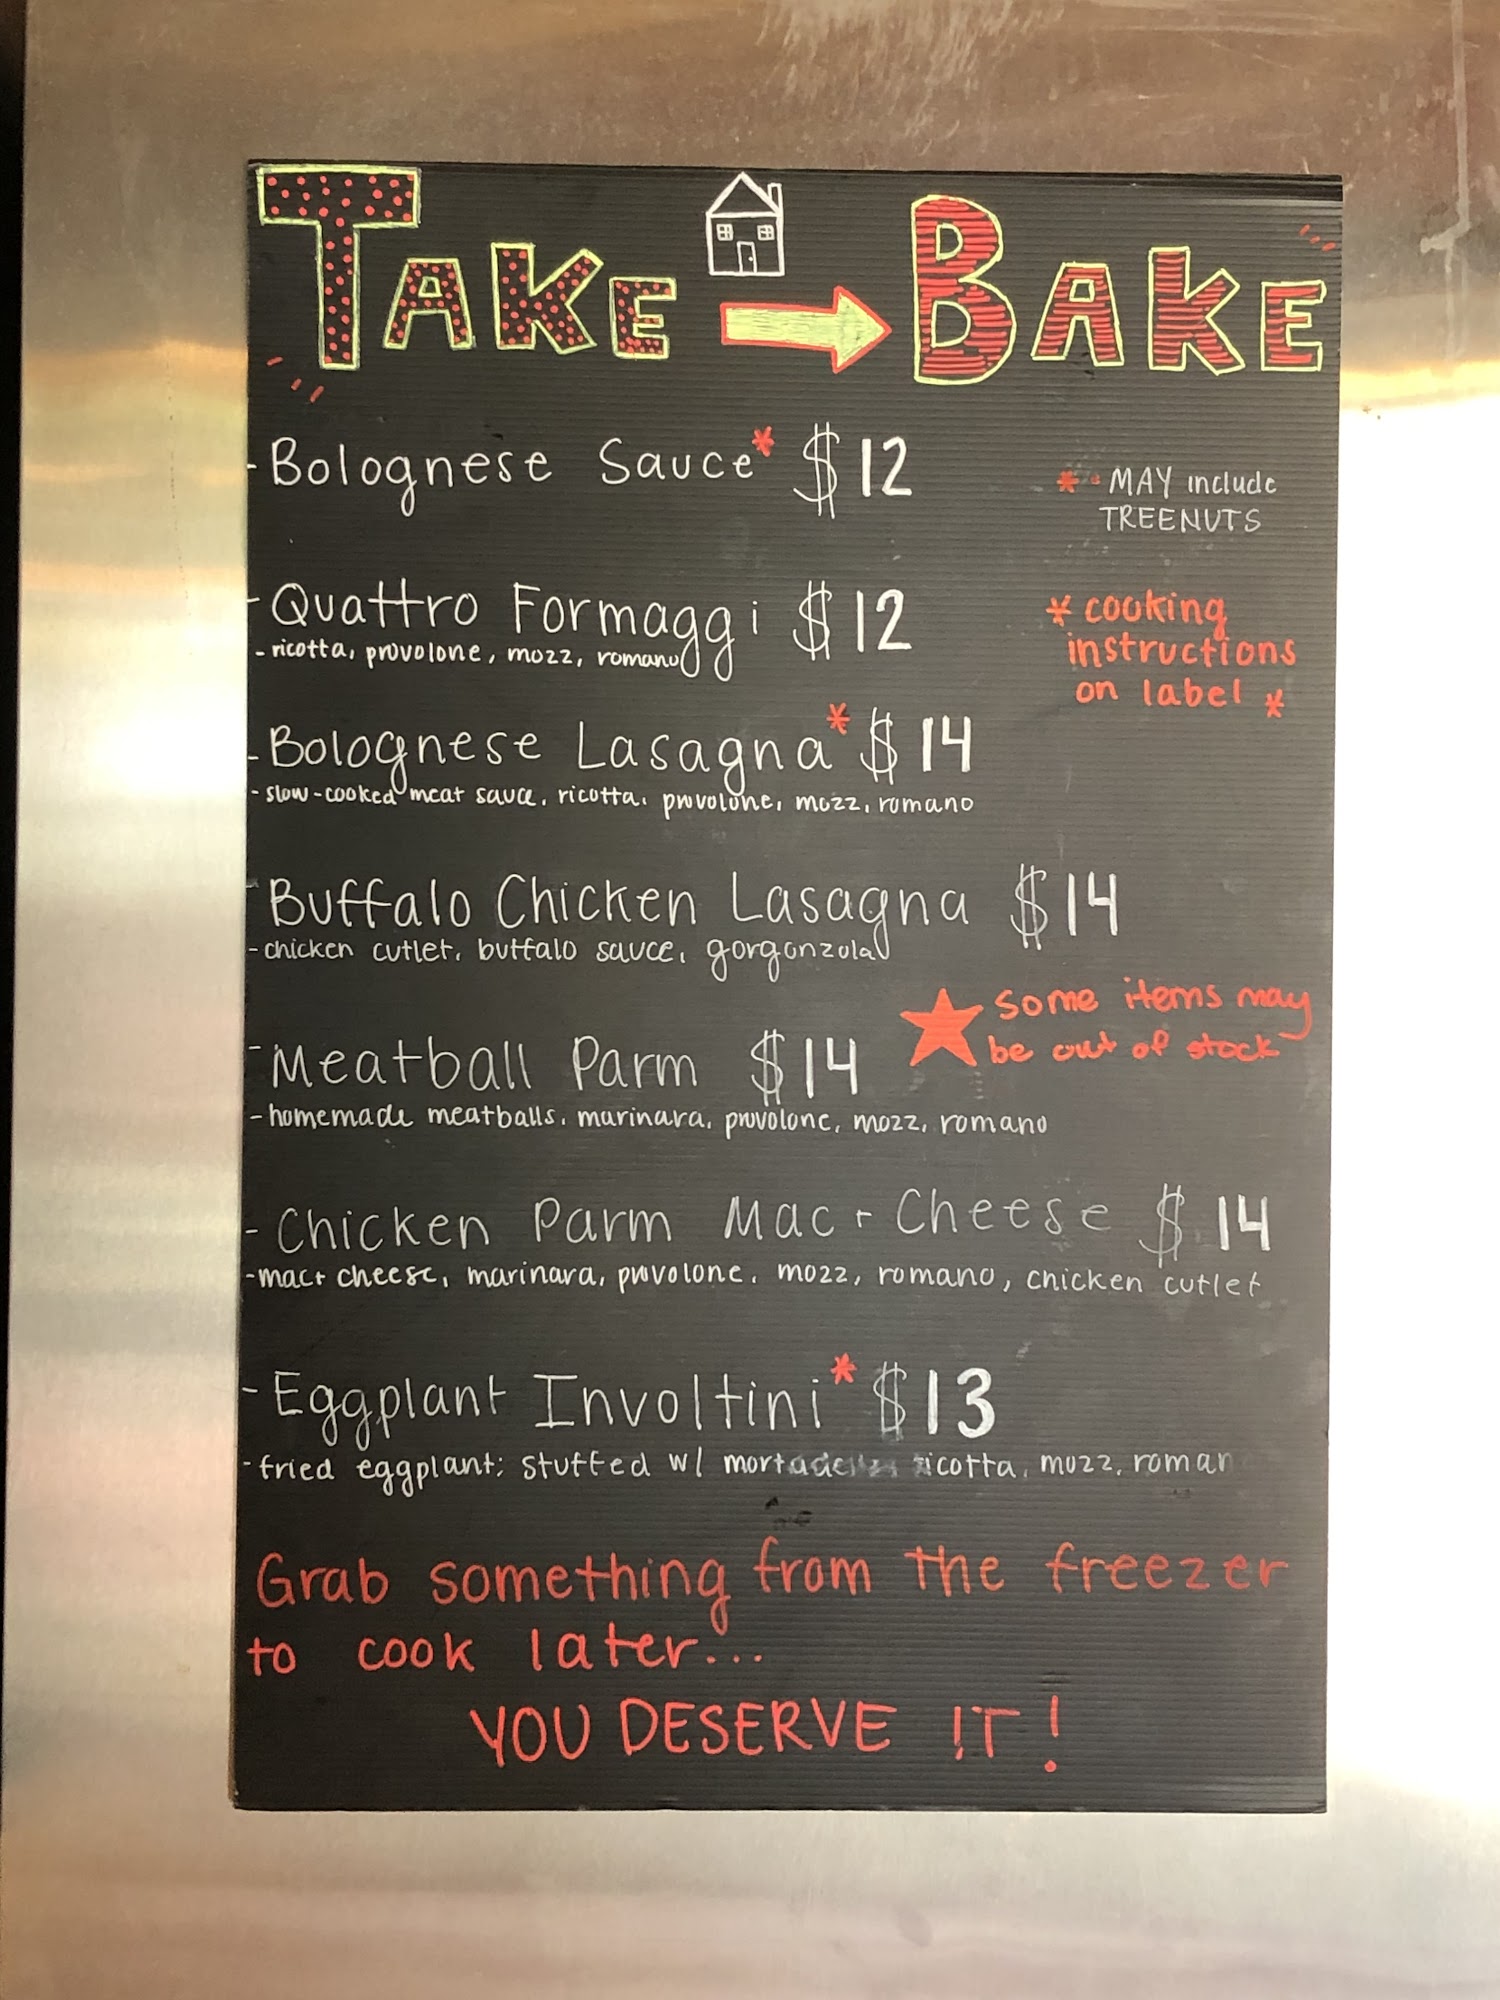 TAKE → BAKE
- Bolognese Sauce* $12
* - MAY include
TREENUTS
- Quattro Formaggi $12
- ricotta, provolone, mozz, romano
* cooking
instructions
on label *
- Bolognese Lasagna* $14
- slow-cooked meat sauce, ricotta, provolone, mozz, romano
- Buffalo Chicken Lasagna $14
- chicken cutlet, buffalo sauce, gorgonzola
★ some items may
be out of stock
- Meatball Parm $14
- homemade meatballs, marinara, provolone, mozz, romano
- Chicken Parm Mac + Cheese $14
- mac + cheese, marinara, provolone, mozz, romano, chicken cutlet
- Eggplant Involtini* $13
- fried eggplant; stuffed w/ ricotta, mozz, roman
Grab something from the freezer
to cook later...
YOU DESERVE IT!